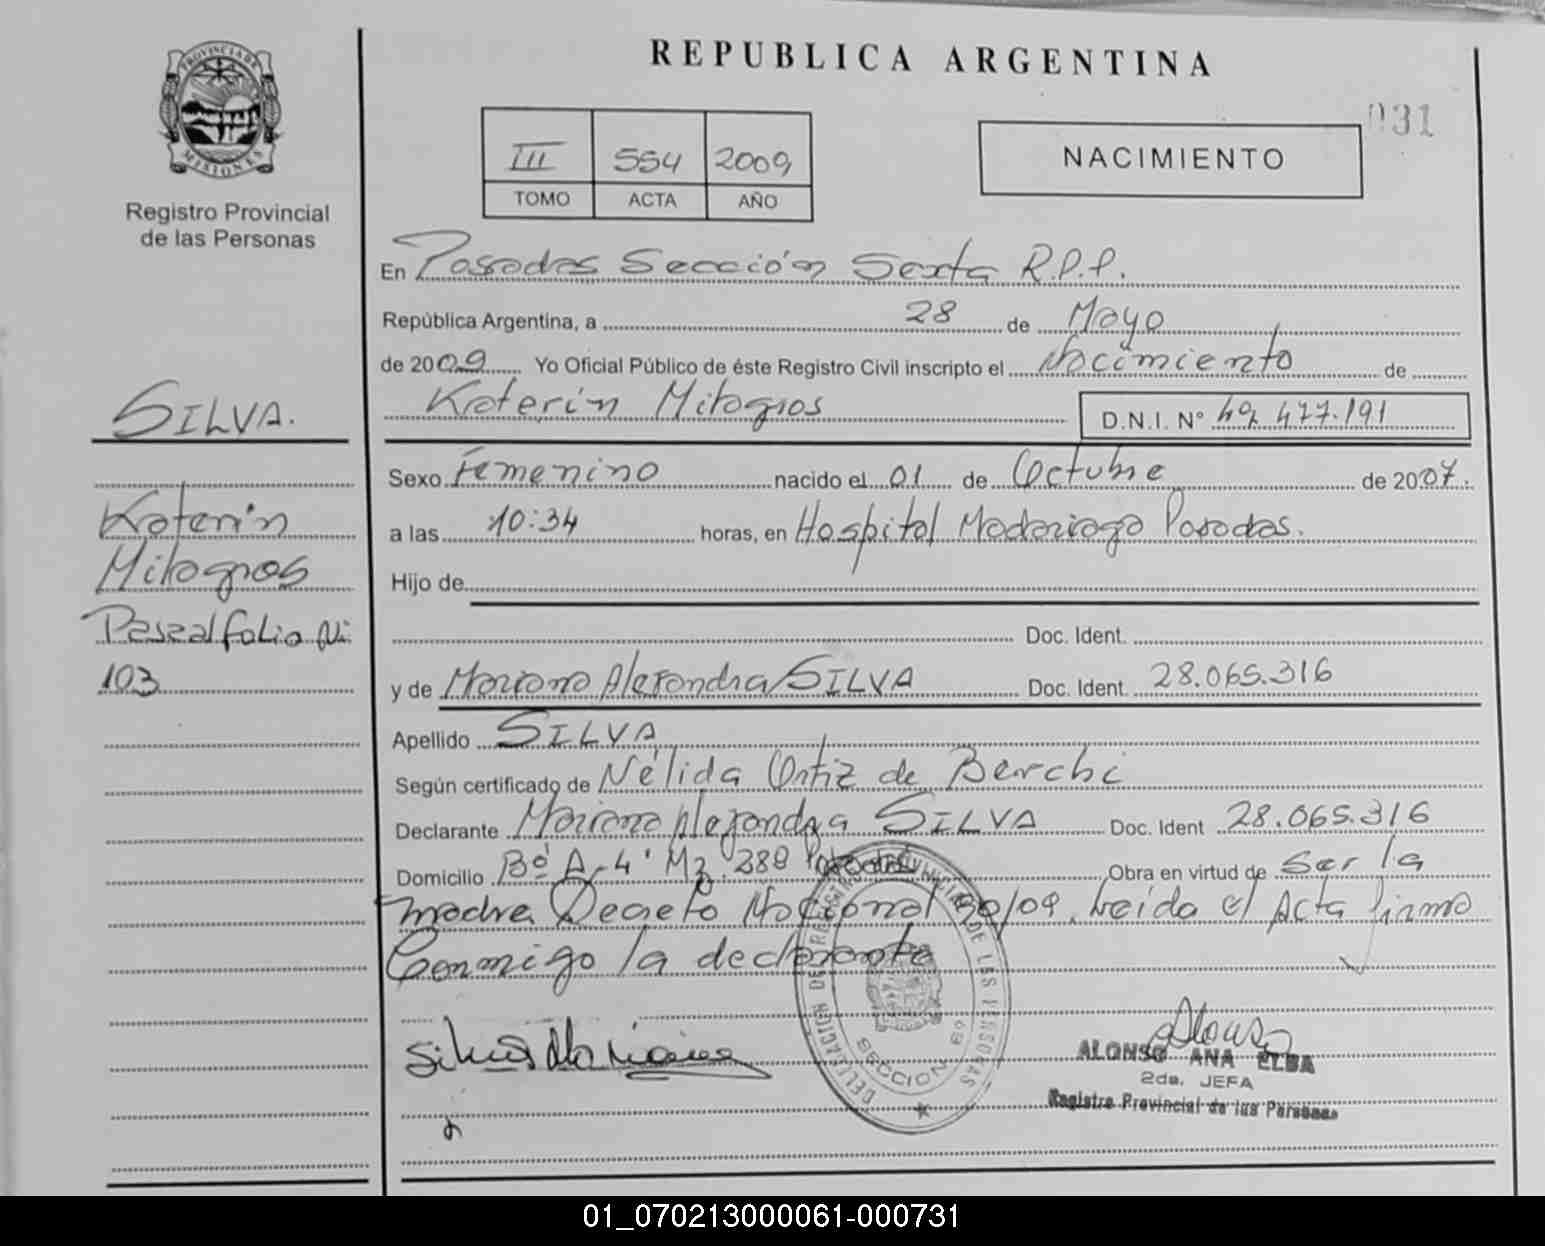 REPUBLICA ARGENTINA
031
PROVINCIA DE
MISIONES
Registro Provincial
de las Personas
III 554 2009
TOMO ACTA AÑO
NACIMIENTO
En Posadas Sección Sexta R.P.P.
República Argentina, a 28 de Mayo
de 2009 Yo Oficial Público de éste Registro Civil inscripto el Nacimiento de
Katerin Milagros
D.N.I. Nº 49 477.191
SILVA.
Katerin
Milagros
Pase al folio Nº
103
Sexo Femenino nacido el 01 de Octubre de 2007.
a las 10:34 horas, en Hospital Madariaga Posadas.
Hijo de
Doc. Ident.
y de Mariana Alejandra SILVA Doc. Ident. 28.065.316
Apellido SILVA
Según certificado de Nélida Ortiz de Berchi
Declarante Mariana Alejandra SILVA Doc. Ident 28.065.316
Domicilio Bº A-4 Mz 388 Posadas Obra en virtud de Ser la
madre Decreto Nacional 90/09. Leída el Acta firma
Conmigo la declarante
Silva Mariana
DELEGACION DE REGISTRO PROVINCIAL DE LAS PERSONAS
SECCION 6ª
Alonso
ALONSO ANA ELBA
2da. JEFA
Registro Provincial de las Personas
01_070213000061-000731